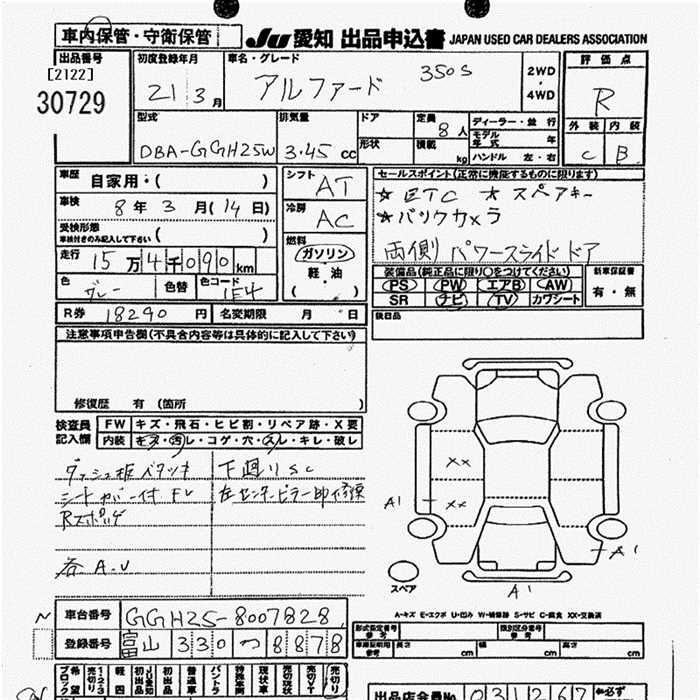 車内保管・守衛保管
JU 愛知 出品申込書 JAPAN USED CAR DEALERS ASSOCIATION
出品番号
[2122]
30729
初度登録年月
21 3 月
車名・グレード
アルファード 350S
2WD
・
4WD
評価点
R
外装 内装
C B
型式
DBA-GGH25W
排気量
3.45 cc
ドア
形状
定員
8 人
積載
kg
ディーラー・並行
モデル年式 年
ハンドル 左・右
車歴 自家用・( )
車検 8 年 3 月 (14 日)
受検形態
車検付きのみ記入して下さい ( )
走行 15 万 4 千 090 km
色 グレー 色替 色コード 1E4
シフト AT
冷房 AC
燃料
ガソリン
軽・油
( )
セールスポイント(正常に機能するものに限ります)
★ ETC ★ スペアキー
★バックカメラ
両側 パワースライドドア
装備品(純正品に限り○をつけてください)
PS PW エアB AW
SR ナビ TV カワシート
新車保証書
有・無
後日品
R券 18290 円 名変期限 月 日
注意事項申告欄(不具合内容等は具体的に記入して下さい)
修復歴 有 (箇所 )
検査員記入欄
FW キズ・飛石・ヒビ割・リペア跡・X要
内装 キズ・汚レ・コゲ・穴・スレ・キレ・破レ
ダッシュ板ベタツキ 下廻りSC
シートカバー付 FV 左センターピラー部修復
Rスポイラ
各 A.U
XX
XX
A1
A1
A1
スペア
A-キズ E-エクボ U-凹み W-補修跡 S-サビ C-腐食 XX-交換済
N 車台番号 GGH25-8007828
登録番号 富山 330 つ 8878
型式指定番号 参考
類別区分番号 参考
車庫証明用 参考 長さ cm 幅 cm 高さ cm
希望ブロック 売切り 1・2 軽四 JU愛知初出品 初出品 普通車 バントラ 特殊車両 現状車 売切現状 売切りYT 売切り
出品店会員No 0312617 ※必ず